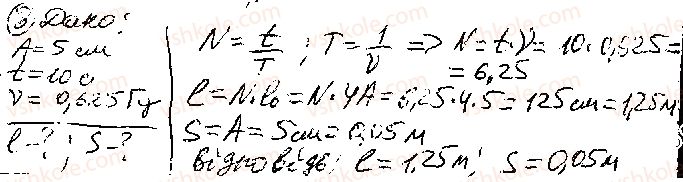 ⑥ Дано:
A = 5 см
t = 10 с
ν = 0,625 Гц
l - ? ; S - ?
N = t/T ; T = 1/ν => N = t·ν = 10·0,625 =
= 6,25
l = N·l₀ = N·4A = 6,25·4·5 = 125 см = 1,25 м
S = A = 5 см = 0,05 м
Відповідь: l = 1,25 м; S = 0,05 м